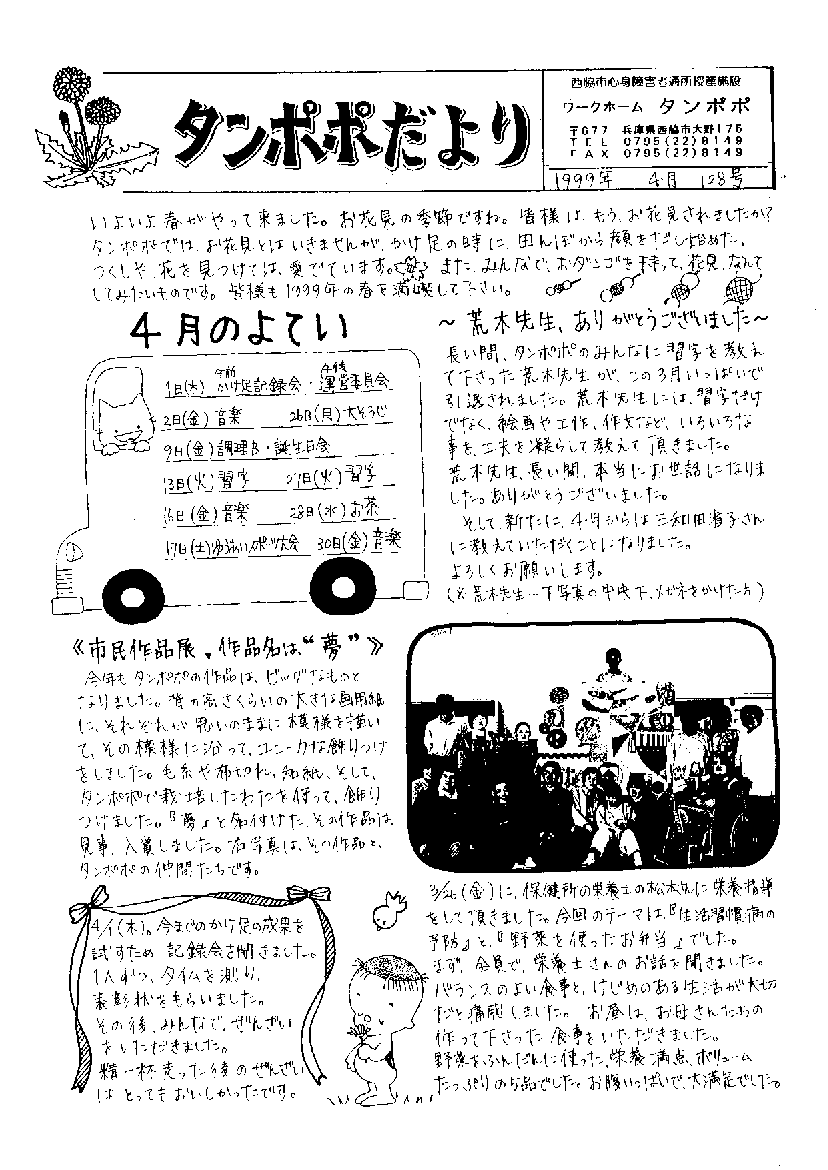 タンポポだより
西脇市心身障害者通所授産施設
ワークホーム タンポポ
〒677 兵庫県西脇市大野175
TEL 0795(22)8149
FAX 0795(22)8149
1999年 4月 128号
いよいよ春がやって来ました。お花見の季節ですね。皆様は、もう、お花見されましたか?
タンポポでは、お花見とはいきませんが、かけ足の時に、田んぼから顔をさし始めた、
つくしや、花を見つけては、愛でています。また、みんなで、おダンゴを持って、花見、なんて
してみたいものです。皆様も1999年の春を満喫して下さい。
4月のよてい
1日(木) 午前 かけ足記録会・午後 運営委員会
2日(金) 音楽 26日(月) 大そうじ
9日(金) 調理・誕生日会
13日(火) 習字 27日(火) 習字
16日(金) 音楽 28日(水) お茶
17日(土) スポーツ大会 30日(金) 音楽
~荒木先生、ありがとうございました~
長い間、タンポポのみんなに習字を教え
て下さった荒木先生が、この3月いっぱいで
引退されました。荒木先生には、習字だけ
でなく、絵画や工作、作文など、いろいろな
事を、工夫を凝らして教えて頂きました。
荒木先生、長い間、本当にお世話になりま
した。ありがとうございました。
そして、新たに、4月からは 三和田 さん
に教えていただくことになりました。
よろしくお願いします。
(※荒木先生…下写真の中央下、メガネをかけた方)
《市民作品展、作品名は、“夢”》
今年もタンポポの作品は、ビッグなものと
なりました。背の高さくらいの大きな画用紙
に、それぞれが思いのままに模様を描い
て、その模様に沿って、ユニークな飾りつけ
をしました。毛糸や布切れ、和紙、そして、
タンポポで栽培したわたを使って、飾り
つけました。『夢』と名付けた、その作品は
見事、入賞しました。右写真は、その作品と、
タンポポの仲間たちです。
4/1(木)。今までのかけ足の成果を
試すため 記録会を開きました。
1人ずつ、タイムを測り、
表彰状をもらいました。
その後、みんなで、ぜんざい
をいただきました。
精一杯走った後のぜんざい
はとってもおいしかったです。
3/26(金)に、保健所の栄養士の松本 に栄養指導
をして頂きました。今回のテーマは、『生活習慣病の
予防』と、『野菜を使ったお弁当』でした。
まず、全員で、栄養士さんのお話を聞きました。
バランスのよい食事と、けじめのある生活が大切
だと痛感しました。 お昼は、お母さんたちの
作って下さった食事をいただきました。
野菜をふんだんに使った、栄養満点、ボリューム
たっぷりの5品でした。お腹いっぱいで、大満足でした。